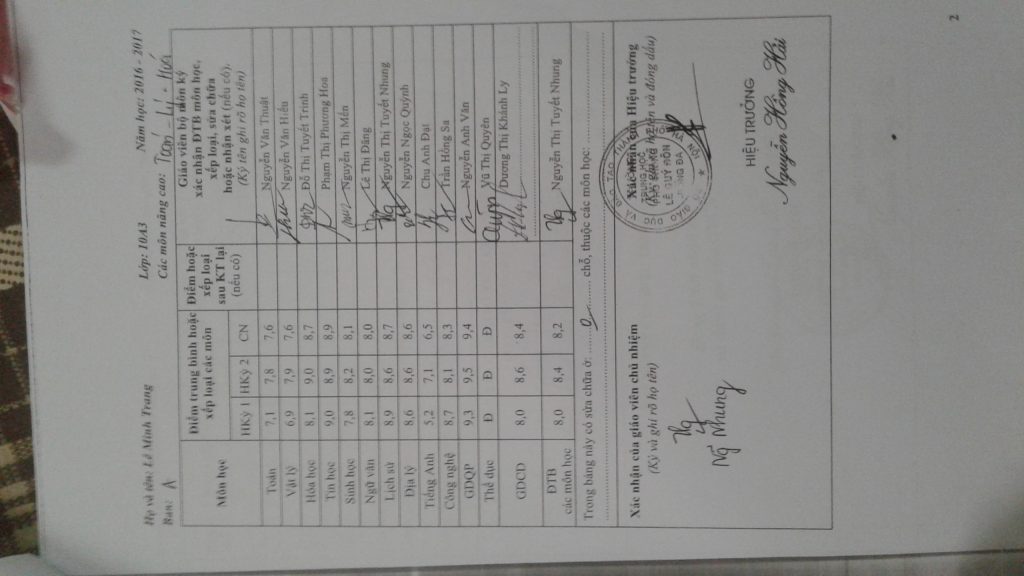 Họ và tên: Lê Minh Trang Lớp: 10A3 Năm học: 2016 - 2017
Ban: A Các môn nâng cao: Toán - Lý - Hoá
Môn học Điểm trung bình hoặc xếp loại các môn Điểm hoặc xếp loại sau KT lại (nếu có) Giáo viên bộ môn ký xác nhận ĐTB môn học, xếp loại, sửa chữa hoặc nhận xét (nếu có), (Ký tên ghi rõ họ tên)
HKỳ 1 HKỳ 2 CN
Toán 7,1 7,8 7,6 Nguyễn Văn Thuật
Vật lý 6,9 7,9 7,6 Nguyễn Văn Hiếu
Hóa học 8,1 9,0 8,7 Đỗ Thị Tuyết Trinh
Tin học 9,0 8,9 8,9 Phạm Thị Phương Hoa
Sinh học 7,8 8,2 8,1 Nguyễn Thị Mến
Ngữ văn 8,1 8,0 8,0 Lê Thị Đăng
Lịch sử 8,9 8,6 8,7 Nguyễn Thị Tuyết Nhung
Địa lý 8,6 8,6 8,6 Nguyễn Ngọc Quỳnh
Tiếng Anh 5,2 7,1 6,5 Chu Anh Đạt
Công nghệ 8,7 8,1 8,3 Trần Hồng Sa
GDQP 9,3 9,5 9,4 Nguyễn Anh Văn
Thể dục Đ Đ Đ Vũ Thị Quyên
GDCD 8,0 8,6 8,4 Dương Thị Khánh Ly
ĐTB các môn học 8,0 8,4 8,2 Nguyễn Thị Tuyết Nhung
Trong bảng này có sửa chữa ở: chỗ, thuộc các môn học:
Xác nhận của giáo viên chủ nhiệm
(Ký và ghi rõ họ tên)
Ng Nhung
Xác nhận của Hiệu trưởng
(Ký, ghi rõ họ tên và đóng dấu)
LÊ QUÝ ĐÔN
HIỆU TRƯỞNG
Nguyễn Hồng Hải
2